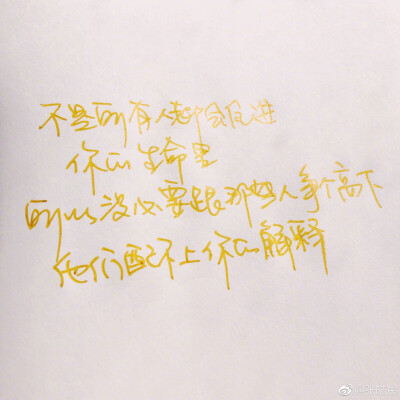 不是所有人都会留进
你的生命里
所以没必要跟那些人争个高下
他们配不上你的解释